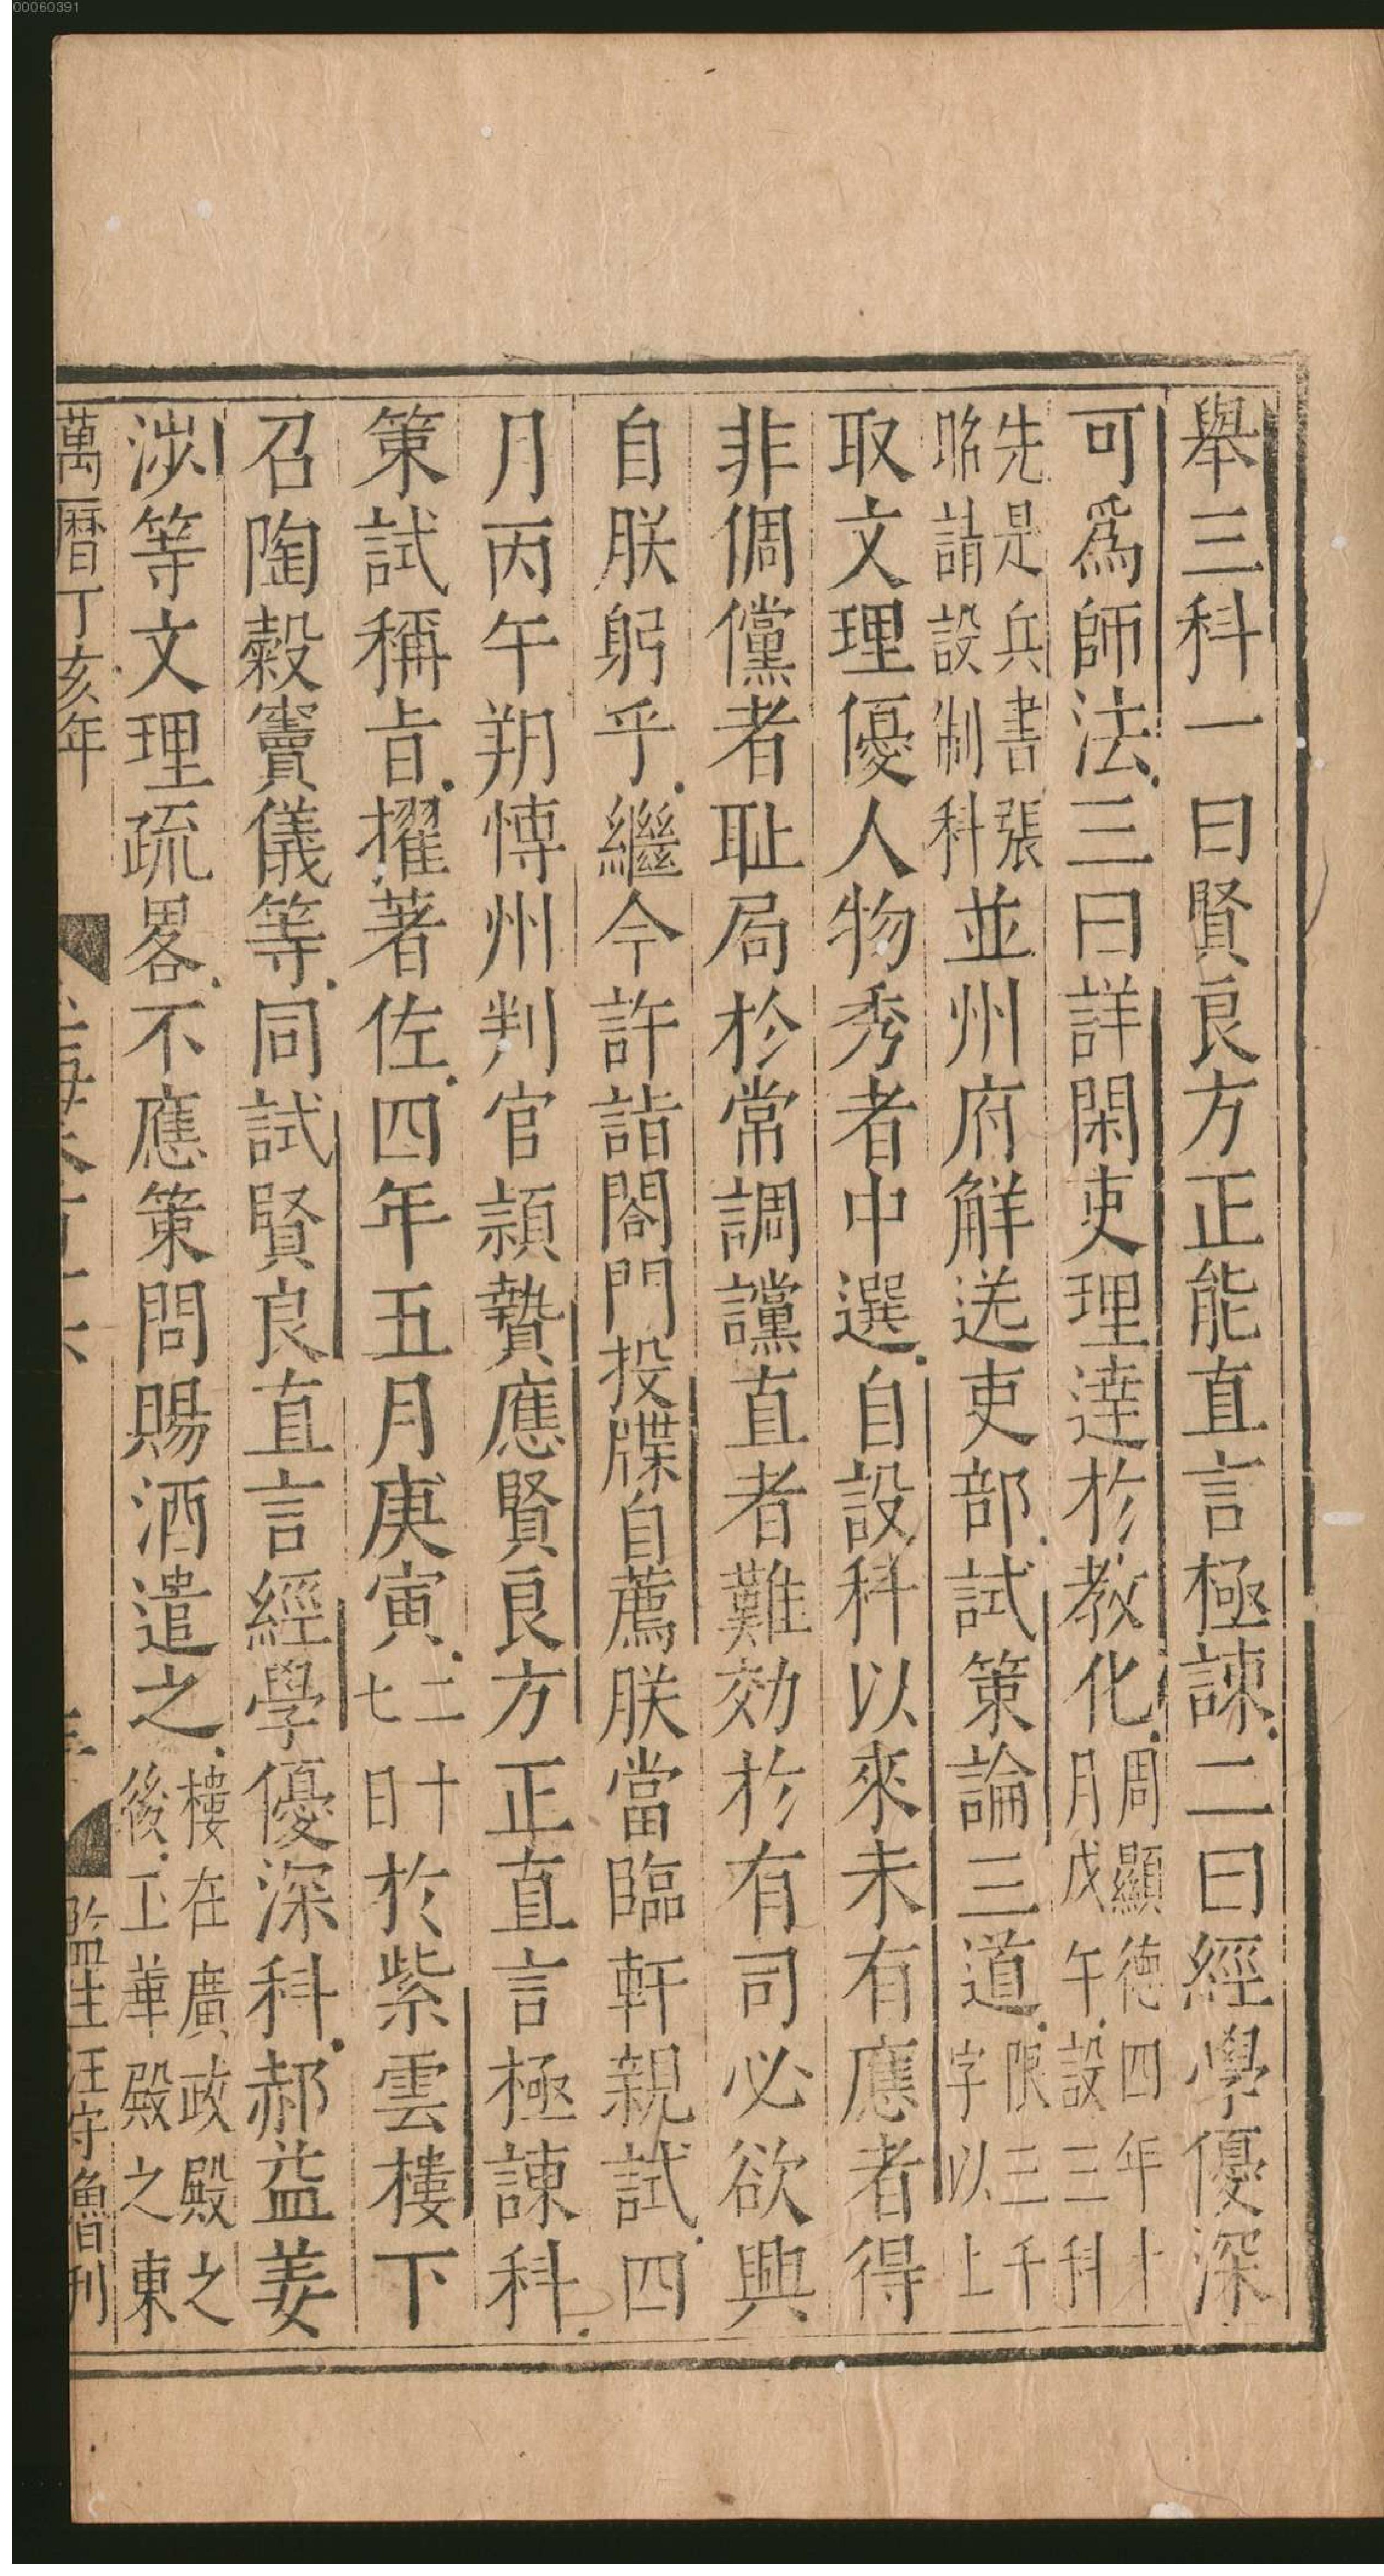 00060391
舉三科一曰賢良方正能直言極諫二曰經學優深
可爲師法三曰詳閑吏理達於教化周顯德四年十月戊午設三科
先是兵書張昭請設制科並州府解送吏部試策論三道限三千字以上
取文理優人物秀者中選自設科以來未有應者得
非倜儻者耻局於常調讜直者難効於有司必欲興
自朕躬乎繼今許詣閤門投牒自薦朕當臨軒親試四
月丙午朔愽州判官頴贄應賢良方正直言極諫科
策試稱旨擢著佐四年五月庚寅二十七日於紫雲樓下
召陶穀竇儀等同試賢良直言經學優深科郝益姜
涉等文理疏畧不應策問賜酒遣之樓在廣政殿之後工華殿之東
萬曆丁亥年
監生汪守魯刊